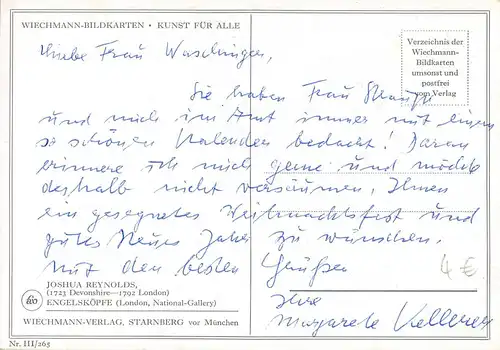 WIECHMANN-BILDKARTEN • KUNST FÜR ALLE
Verzeichnis der
Wiechmann-
Bildkarten
umsonst und
postfrei
vom Verlag
Liebe Frau
Sie haben Frau
und mich im Amt immer mit einem
so schönen Kalender bedacht! Daran
erinnere ich mich gerne und möchte
deshalb nicht versäumen, Ihnen
ein gesegnetes Weihnachtsfest und
gutes Neues Jahr zu wünschen.
Mit den besten Grüßen
4 €
Ihre
Margarete
JOSHUA REYNOLDS,
(1723 Devonshire—1792 London)
ENGELSKÖPFE (London, National-Gallery)
WIECHMANN-VERLAG, STARNBERG vor München
Nr. III/265